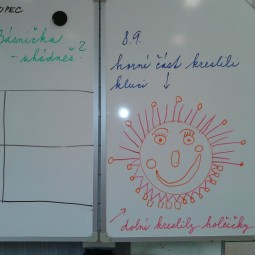 OPEC
Básnička
- uhádneš?
8.9.
horní část kreslili
kluci ↓
↗ dolní kreslily holčičky